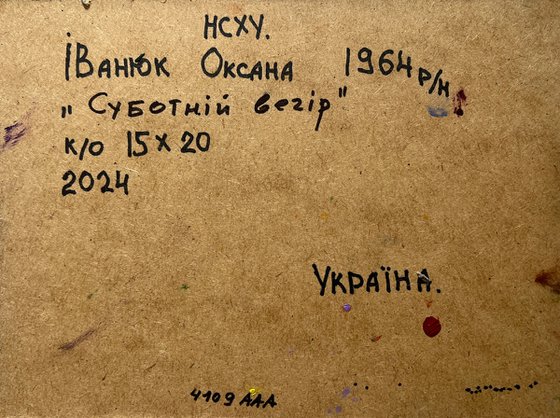 НСХУ.
Іванюк Оксана 1964 р/н
„Суботній вечір"
к/о 15х20
2024
Україна.
4109 ААА